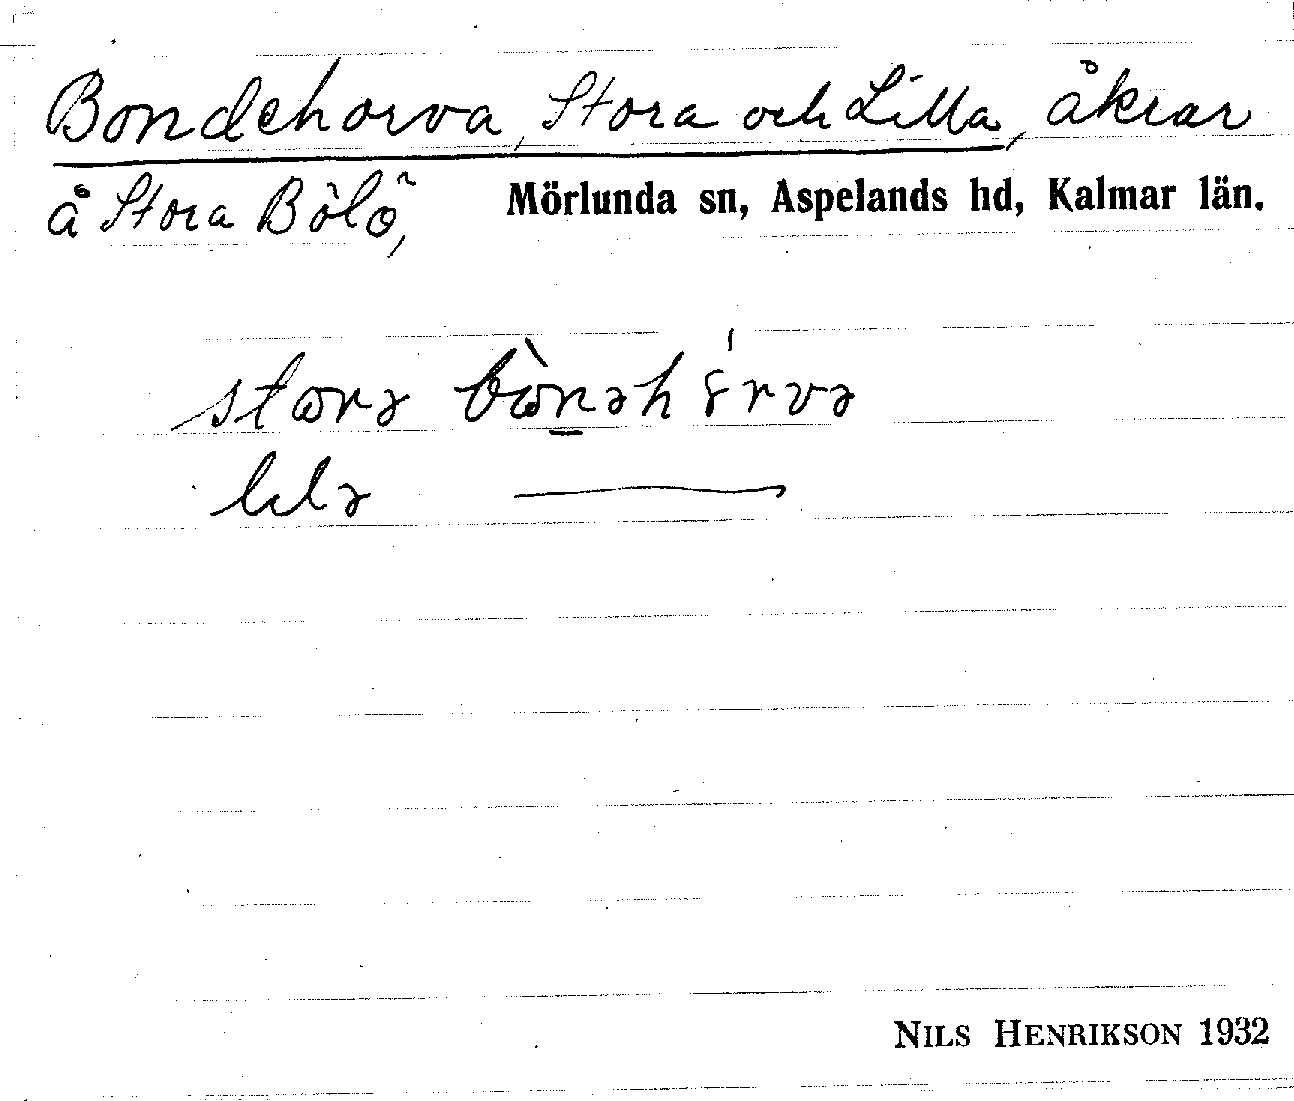 Bondehorva, Stora och Lilla, åkrar
å Stora Bölö, Mörlunda sn, Aspelands hd, Kalmar län.
stora
lilə
NILS HENRIKSON 1932